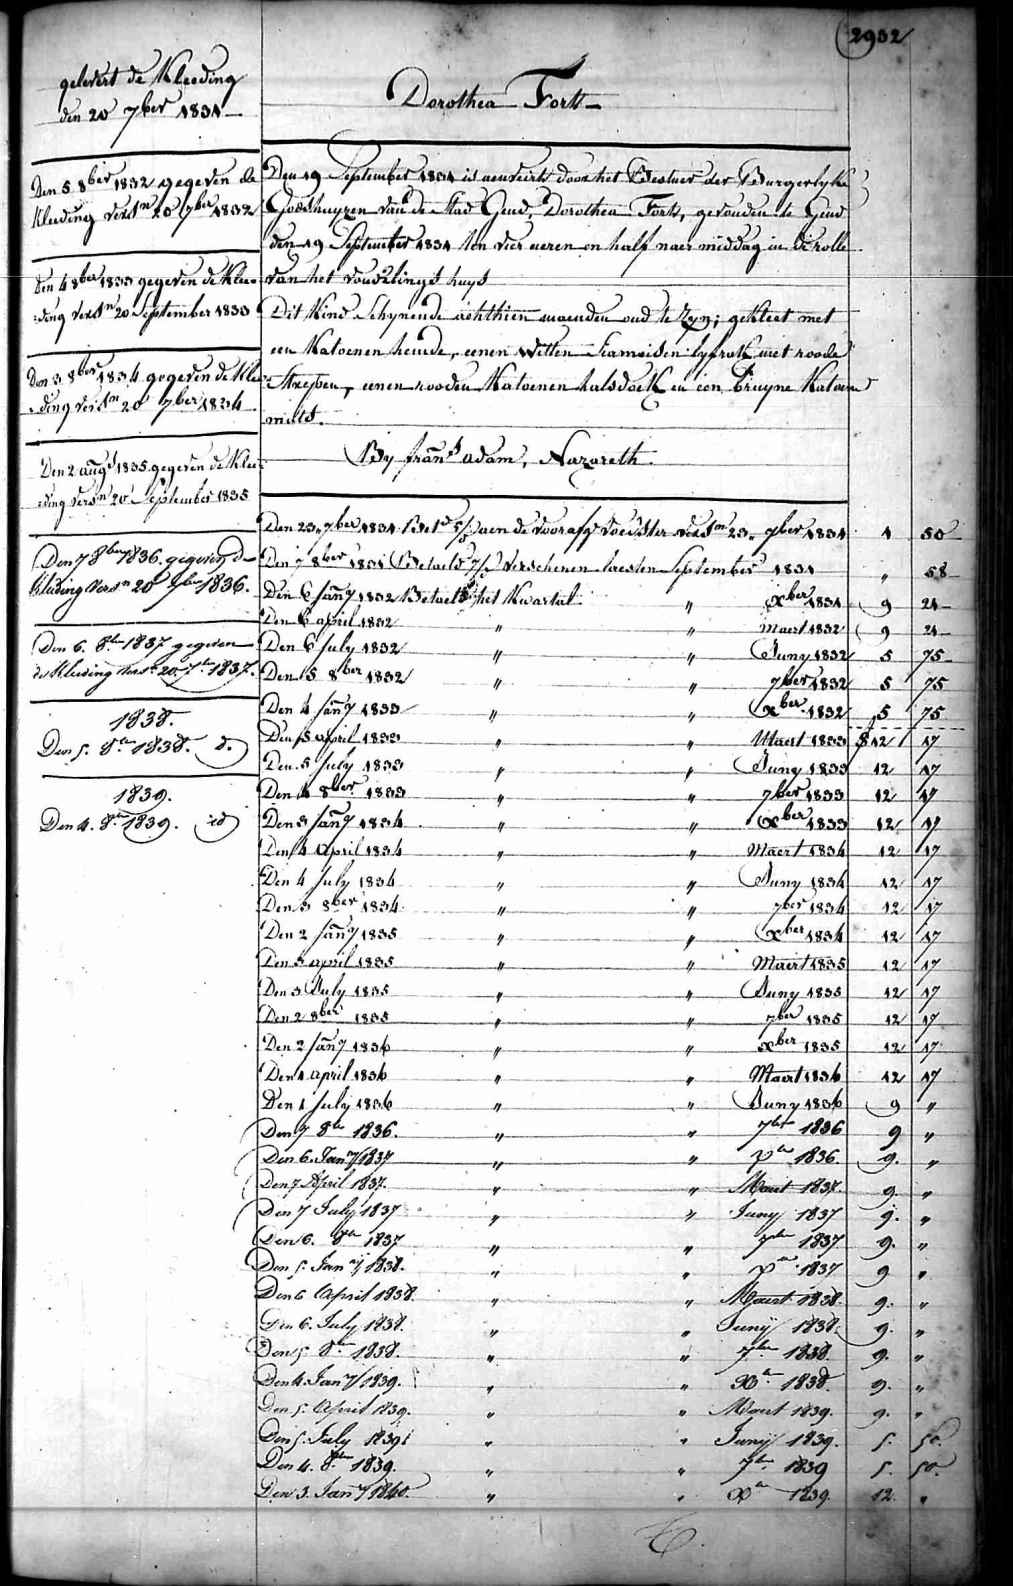 2932
gelevert de Kleeding
den 20 7ber 1831
Den 5 8ber 1832 gegeven de
Kleeding versn 20 7ber 1832
Den 4 8ber 1833 gegeven de Klee-
ding versn 20 September 1833
Den 3 8ber 1834 gegeven de Klee-
ding versn 20 7ber 1834
Den 2 augt 1835 gegeven de Klee-
ding versn 20 September 1835
Den 7 8ber 1836. gegeven de
kleeding versn 20 7ber 1836.
Den 6. 8er 1837 gegeven
de Kleeding versn 20. 7er 1837.
1838.
Den 5. 8er 1838. d.
1839.
Den 4. 8er 1839. id
Dorothea Forts
Den 19 September 1831 is aenveirt door het Bestier der Burgerlyke
Godshuyzen van de Stad Gend, Dorothea Forts, gevonden te Gend
den 19 September 1831 ten vier ueren en half naer middag in de rolle
van het vondelings huys
Dit Kind Schynende achthien maenden oud te zyn; gekleet met
een Katoenen hemde, eenen witten Siamoisen lyfrok met roode
Streepen, eenen rooden Katoenen halsdoek en een bruyne Katoene
muts.
By frans adam, Nazareth.
Den 23 7ber 1831 Bet aen de voorafg voedster versn 23 7ber 1831 1 50
Den 7 8ber 1831 Betaeld verschenen laesten September 1831 " 58
Den 6 Jany 1832 Betaelt het Kwartal " xber 1831 9 21
Den 6 april 1832 " " maert 1832 9 21
Den 6 July 1832 " " Juny 1832 5 75
Den 5 8ber 1832 " " 7ber 1832 5 75
Den 4 Jany 1833 " " xber 1832 5 75
Den 5 april 1833 " " Maert 1833 12 17
Den 5 July 1833 " " Juny 1833 12 17
Den 4 8ber 1833 " " 7ber 1833 12 17
Den 3 Jany 1834 " " xber 1833 12 17
Den 4 April 1834 " " Maert 1834 12 17
Den 4 July 1834 " " Juny 1834 12 17
Den 3 8ber 1834 " " 7ber 1834 12 17
Den 2 Jany 1835 " " xber 1834 12 17
Den 3 april 1835 " " Maert 1835 12 17
Den 3 July 1835 " " Juny 1835 12 17
Den 2 8ber 1835 " " 7ber 1835 12 17
Den 2 Jany 1836 " " xber 1835 12 17
Den 1 april 1836 " " Maert 1836 12 17
Den 1 July 1836 " " Juny 1836 9 "
Den 7 8er 1836. " " 7er 1836 9 "
Den 6. Jany 1837 " " xer 1836. 9. "
Den 7 April 1837. " " Maert 1837. 9. "
Den 7 July 1837 " " Juny 1837 9. "
Den 6. 8er 1837 " " 7er 1837 9. "
Den 5. Jany 1838. " " xer 1837 9 "
Den 6 April 1838. " " Maert 1838. 9. "
Den 6. July 1838. " " Juny 1838. 9. "
Den 5 8er 1838. " " 7er 1838. 9. "
Den 4. Jany 1839. " " Xer 1838. 9. "
Den 5. April 1839. " " Maert 1839. 9. "
Den 5. July 1839. " " Juny 1839. 5. 50.
Den 4. 8er 1839. " " 7er 1839 5. 50.
Den 3. Jany 1840. " " Xer 1839. 12. "